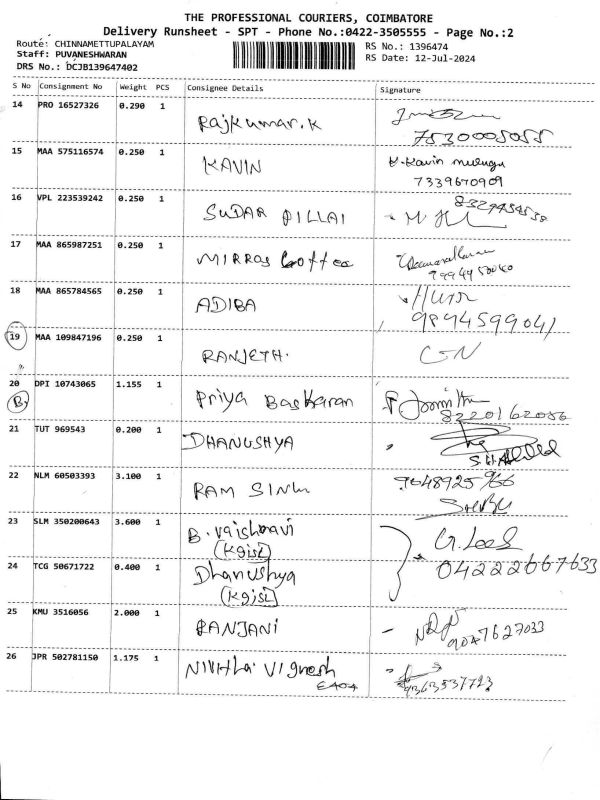 THE PROFESSIONAL COURIERS, COIMBATORE
Delivery Runsheet - SPT - Phone No.:0422-3505555 - Page No.:2
Route: CHINNAMETTUPALAYAM
Staff: PUVANESHWARAN
DRS No.: DCJB139647402
RS No.: 1396474
RS Date: 12-Jul-2024
S No Consignment No Weight PCS Consignee Details Signature
14 PRO 16527326 0.290 1
Rajkumar.K
7530005055
15 MAA 575116574 0.250 1
KAVIN
K.Kavin
7339670909
16 VPL 223539242 0.250 1
SUDAR PILLAI
17 MAA 865987251 0.250 1
MIRROS Coffee
9994450040
18 MAA 865784565 0.250 1
ADIBA
9894599041
19 MAA 109847196 0.250 1
RANJETH.
20 DPI 10743065 1.155 1
B.
Priya Baskaran
8220162056
21 TUT 969543 0.200 1
DHANUSHYA
22 NLM 60503393 3.100 1
RAM SINGH
23 SLM 350200643 3.600 1
B. Vaishnavi
(Kgisl)
24 TCG 50671722 0.400 1
Dhanushya
(Kgisl)
04222667633
25 KMU 3516056 2.000 1
RANJANI
9047627033
26 JPR 502781150 1.175 1
Nivitha Vignesh
E404
9363537723